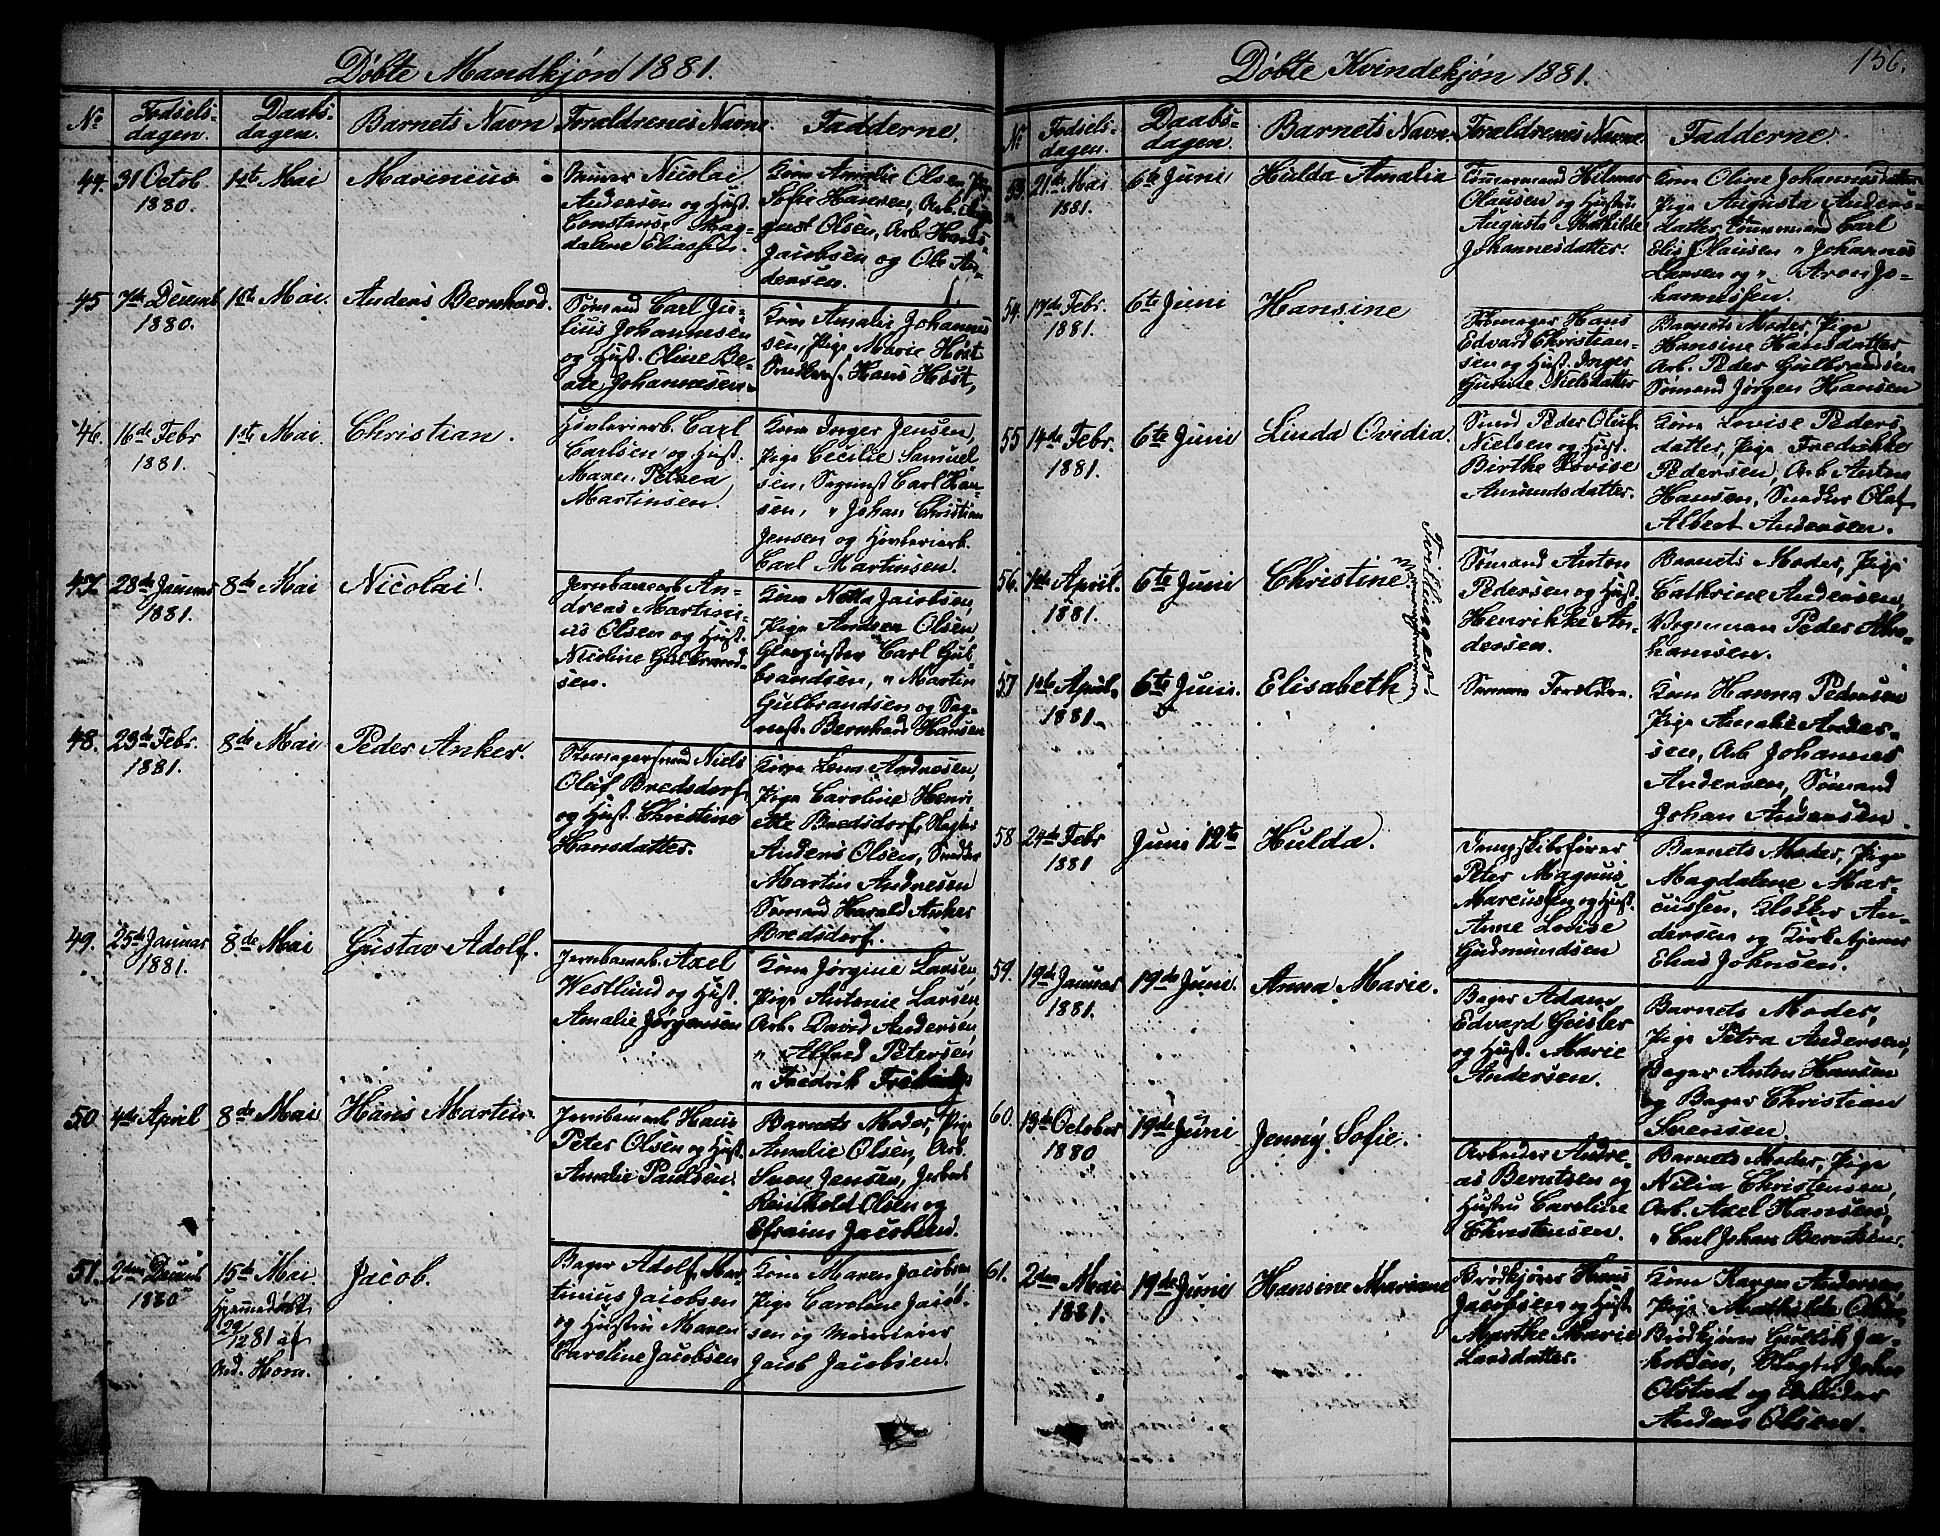 Døbte Mandkjøn 1881.
No
Fødsels-
dagen.
Daabs-
dagen.
Barnets Navn
Forældrenes Navne.
Fadderne.
44. 31 Octob.
1880.
1ste Mai
Marinius
Nicolai
Andersen og Hust.
Constanse Mag-
dalene Eliassen.
Kone Amalie Olsen, Pige
Sofie Hansen, Arb. Aug-
gust Olsen, Arb. Hans
Jacobsen og Ole An-
dersen.
45 7de Decemb.
1880.
1ste Mai.
Anders Bernhard.
Sømand Carl Ju-
lius Johannesen
og Hust. Oline Be-
ate Johannesen
Kone Amalie Johannes-
sen, Pige Marie Høst
Hans Høst,
46. 16de Febr
1881.
1ste Mai.
Christian.
Høvleriarb. Carl
Carlsen og Hust.
Maren Petrea
Martinsen.
Kone Inger Jensen,
Pige Cecilie Samuel-
sen, Sagmst Carl Han-
sen, " Johan Christian
Jensen og Høvleriarb.
Carl Martinsen.
47. 28de Januar
1881.
8de Mai
Nicolai
Jernbanearb. An-
dreas Martini-
us Olsen og Hust.
Nicoline Gulbrand-
sen.
Kone Netta Jacobsen,
Pige Andrea Olsen,
Carl Gul-
brandsen, " Martin
Gulbrandsen og Sag-
mest. Bernhard Hansen
48. 23de Febr.
1881.
8de Mai
Peder Anker.
Niels
Oluf Bredsdorf,
og Hust. Christine
Hansdatter.
Kone Lena Andresen,
Pige Caroline Henri-
ette Bredsdorf,
Anders Olsen, Snedker
Martin Andresen
Sømand Harald Anker
Bredsdorf.
49. 25de Januar
1881.
8de Mai
Gustav Adolf.
Jernbanearb. Axel
Westlund og Hust.
Amalie Jørgensen
Kone Jørgine Larsen,
Pige Antonie Larsen,
Arb. David Andersen
" Alfred Petersen,
" Fredrik
50. 4de April
8de Mai
Hans Martin
Jernbanearb. Hans
Peter Olsen og Hust.
Amalie Paulsen.
Barnets Moder, Pige
Amalie Olsen, Arb.
Sven Jensen,
Reinholdt Olsen og
Efraim Jacobsen.
51. 2den Decemb
1880
15de Mai.
Hjemmedøbt
29/12 81 af
And. Horn.
Jacob.
Bager Adolf Mar-
tinius Jacobsen
og Hustru Maren
Caroline Jacobsen
Kone Maren Jacobsen
Pige Caroline Jacob-
sen og
Jacob Jacobsen.
Døbte Kvindekjøn 1881.
156.
No
Fødsels-
dagen.
Daabs-
dagen.
Barnets Navn.
Forældrenes Navne.
Fadderne.
53. 21de Mai
1881.
6te Juni
Hulda Amalia
Tømmermand Hilmar
Olausen og Hustru
Augusta Mathilde
Johannesdatter.
Kone Oline Johannesdatter
Pige Augusta Anders-
datter, Tømmermand Carl
Elis Olausen " Johannes
Larsen og " Aron Jo-
hannessen.
54. 17de Febr.
1881.
6te Juni
Hansine
Skomager Hans
Edvard Christian-
sen og Hust. Inger
Gurine Nielsdatter
Barnets Moder, Pige
Hansine Hansdatter,
Arb. Peder Gulbrandsen
Sømand Jørgen Hansen
55 14de Febr.
1881.
6te Juni
Linda Ovidia.
Smed Peder Oluf
Nielsen og Hust.
Birthe Lovise
Amundsdatter.
Kone Lovise Peders-
datter, Pige Fredrikke
Pedersen, Arb. Anton
Hansen, Snedker Olaf
Albert Andersen.
56. 1ste April.
1881.
6te Juni
Christine
Tvillinger
Sømand Anton
Pedersen og Hust.
Henrikke An-
dersen.
Barnets Moder, Pige
Cathrine Andersen,
Vognman Peder Abra-
hamsen.
57 1ste April,
1881.
6te Juni.
Elisabeth
Samme Forældre.
Kone Hanna Pedersen
Pige Amalie Ander-
sen, Arb Johannes
Andersen, Sømand
Johan Andersen.
58 24de Febr
1881
Juni 12te
Hulda.
Dampskibsfører
Peter Magnus
Marcussen og Hust.
Anne Lovise
Gudmundsen
Barnets Moder, Pige
Magdalene Mar-
cussen, Klokker An-
dersen og Kirketjener
Elias Johnsen.
59. 19de Januar
1881.
19de Juni.
Anna Marie.
Bager Adam
Edvard Geisler
og Hust. Marie
Andersen.
Barnets Moder,
Pige Petra Andersen,
Bager Anton Hansen
og Bager Christian
Svensen.
60. 13de October
1880
19de Juni
Jenny Sofie.
Arbeider Andre-
as Berntsen og
Hustru Caroline
Christensen.
Barnets Moder, Pige
Nilia Christensen,
Arb. Axel Hansen,
" Carl Johan Berntsen.
61. 2den Mai
1881.
19de Juni
Hansine Mariane
Brødkjører Hans
Jacobsen og Hust.
Marthe Marie
Larsdatter.
Kone Karen Andersen,
Pige Mathilde Olsen,
Brødkjører Gullik Ja-
kobsen, Slagter John
Olstad og Arbeider
Anders Olsen.